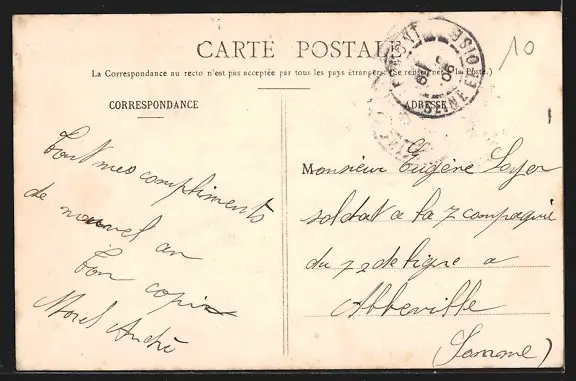 CARTE POSTALE
La Correspondance au recto n'est pas acceptée par tous les pays étrangers. (Se renseigner à la Poste.)
10
CORRESPONDANCE
Tout mes compliments
de nouvel an
Ton copin
Morel André
ADRESSE
Monsieur Eugène Loyer
soldat a la 7 compagnie
du 72 de ligne a
Abbeville
(Somme)
SEINE ET OISE